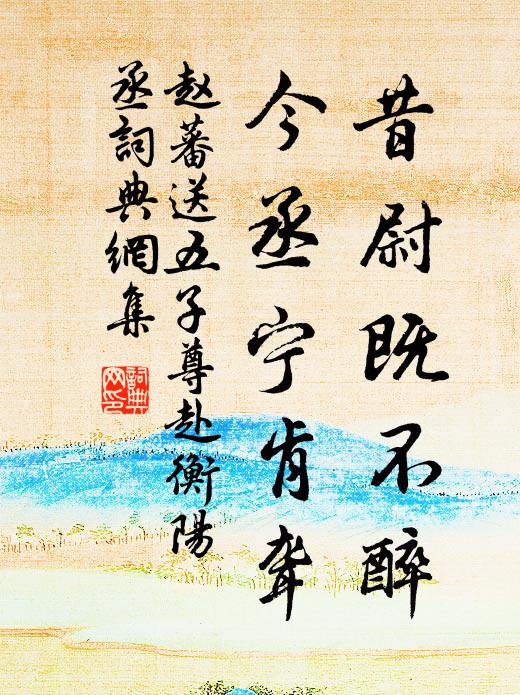 昔尉既不醉
今丞宁肯聋
赵蕃送五子尊赴衡陽
丞詞典網集
詞典
网印